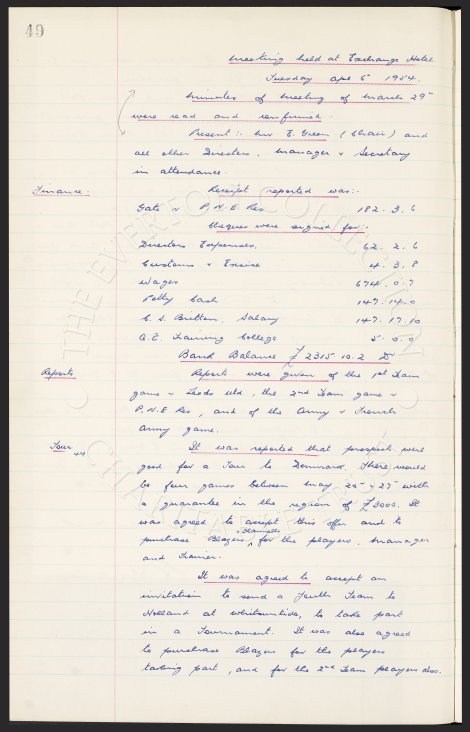 49
Meeting held at Exchange Hotel
Tuesday Apl 6 1954.
Minutes of Meeting of March 29
were read and confirmed.
Present:- Mr E. Green (Chair) and
all other Directors. Manager & Secretary
in attendance.
Finance: Receipt reported was:-
Gate v P.N.E Res 182. 3. 6
Cheques were signed for:-
Directors Expenses. 62. 2. 6
Customs & Excise 4. 3. 8
Wages 674. 0. 7
Petty Cash 147. 14. 0
C. S. Britton, Salary 147. 17. 10
G.E. Training College 5. 0. 0
Bank Balance £ 2315. 10. 2 Dr
Reports Reports were given of the 1st Team
game v Leeds Utd, the 2nd Team game v
P.N.E Res, and of the Army v French
Army game.
Tour It was reported that prospects were
good for a Tour to Denmark, there would
be four games between May 20 - 27 with
a guarantee in the region of £3000. It
was agreed to accept this offer and to
purchase Blazers, & flannels for the players, Manager
and Trainer.
It was agreed to accept an
invitation to send a Youth Team to
Holland at Whitsuntide, to take part
in a Tournament. It was also agreed
to purchase Blazers for the players
taking part, and for the 2nd Team players also.
THE EVERTON COLLECTION
CHARITABLE TRUST